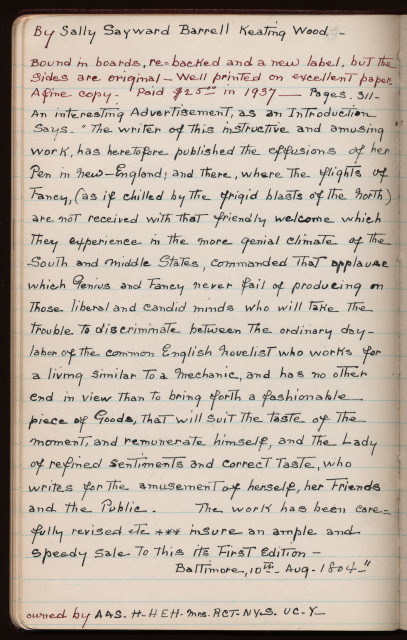 By Sally Sayward Barrell Keating Wood.-
Bound in boards, re=backed and a new label, but the
sides are original - Well printed on excellent paper.
A fine copy. Paid $25.00 in 1937 — Pages. 311-
An interesting Advertisement, as an Introduction
Says. "The writer of this instructive and amusing
work, has heretofore published the effusions of her
Pen in New-England; and there, where the flights of
Fancy, (as if chilled by the frigid blasts of the north)
are not received with that friendly welcome which
they experience in the more genial climate of the
South and middle States, commanded that applause
which Genius and Fancy never fail of producing on
those liberal and candid minds who will take the
trouble to discriminate between the ordinary day-
labor of the common English novelist who works for
a living similar to a Mechanic, and has no other
end in view than to bring forth a fashionable
piece of Goods, that will suit the taste of the
moment, and remunerate himself, and the Lady
of refined sentiments and correct taste, who
writes for the amusement of herself, her Friends
and the Public. The work has been care=
fully revised etc *** insure an ample and
speedy sale to this its First Edition -
Baltimore, 10th. Aug. 1804-"
owned by AAS. H-HEH-Mrs. RCT-NYS. UC-Y-